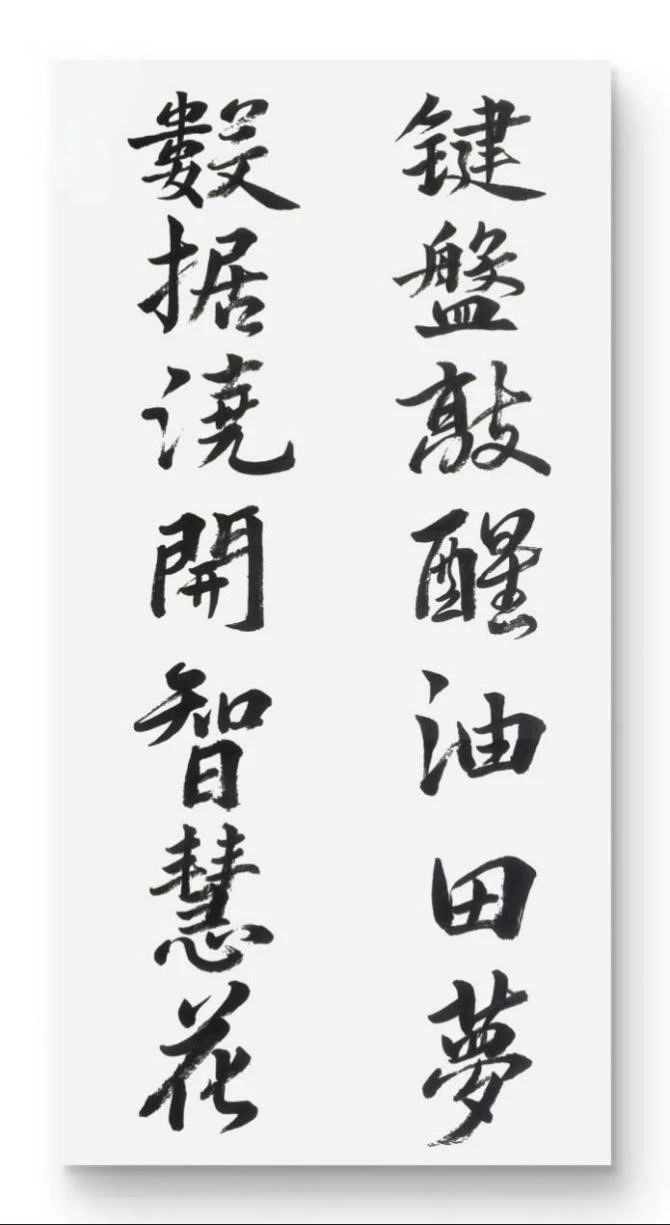 鍵盤敲醒油田夢
數据澆開智慧花